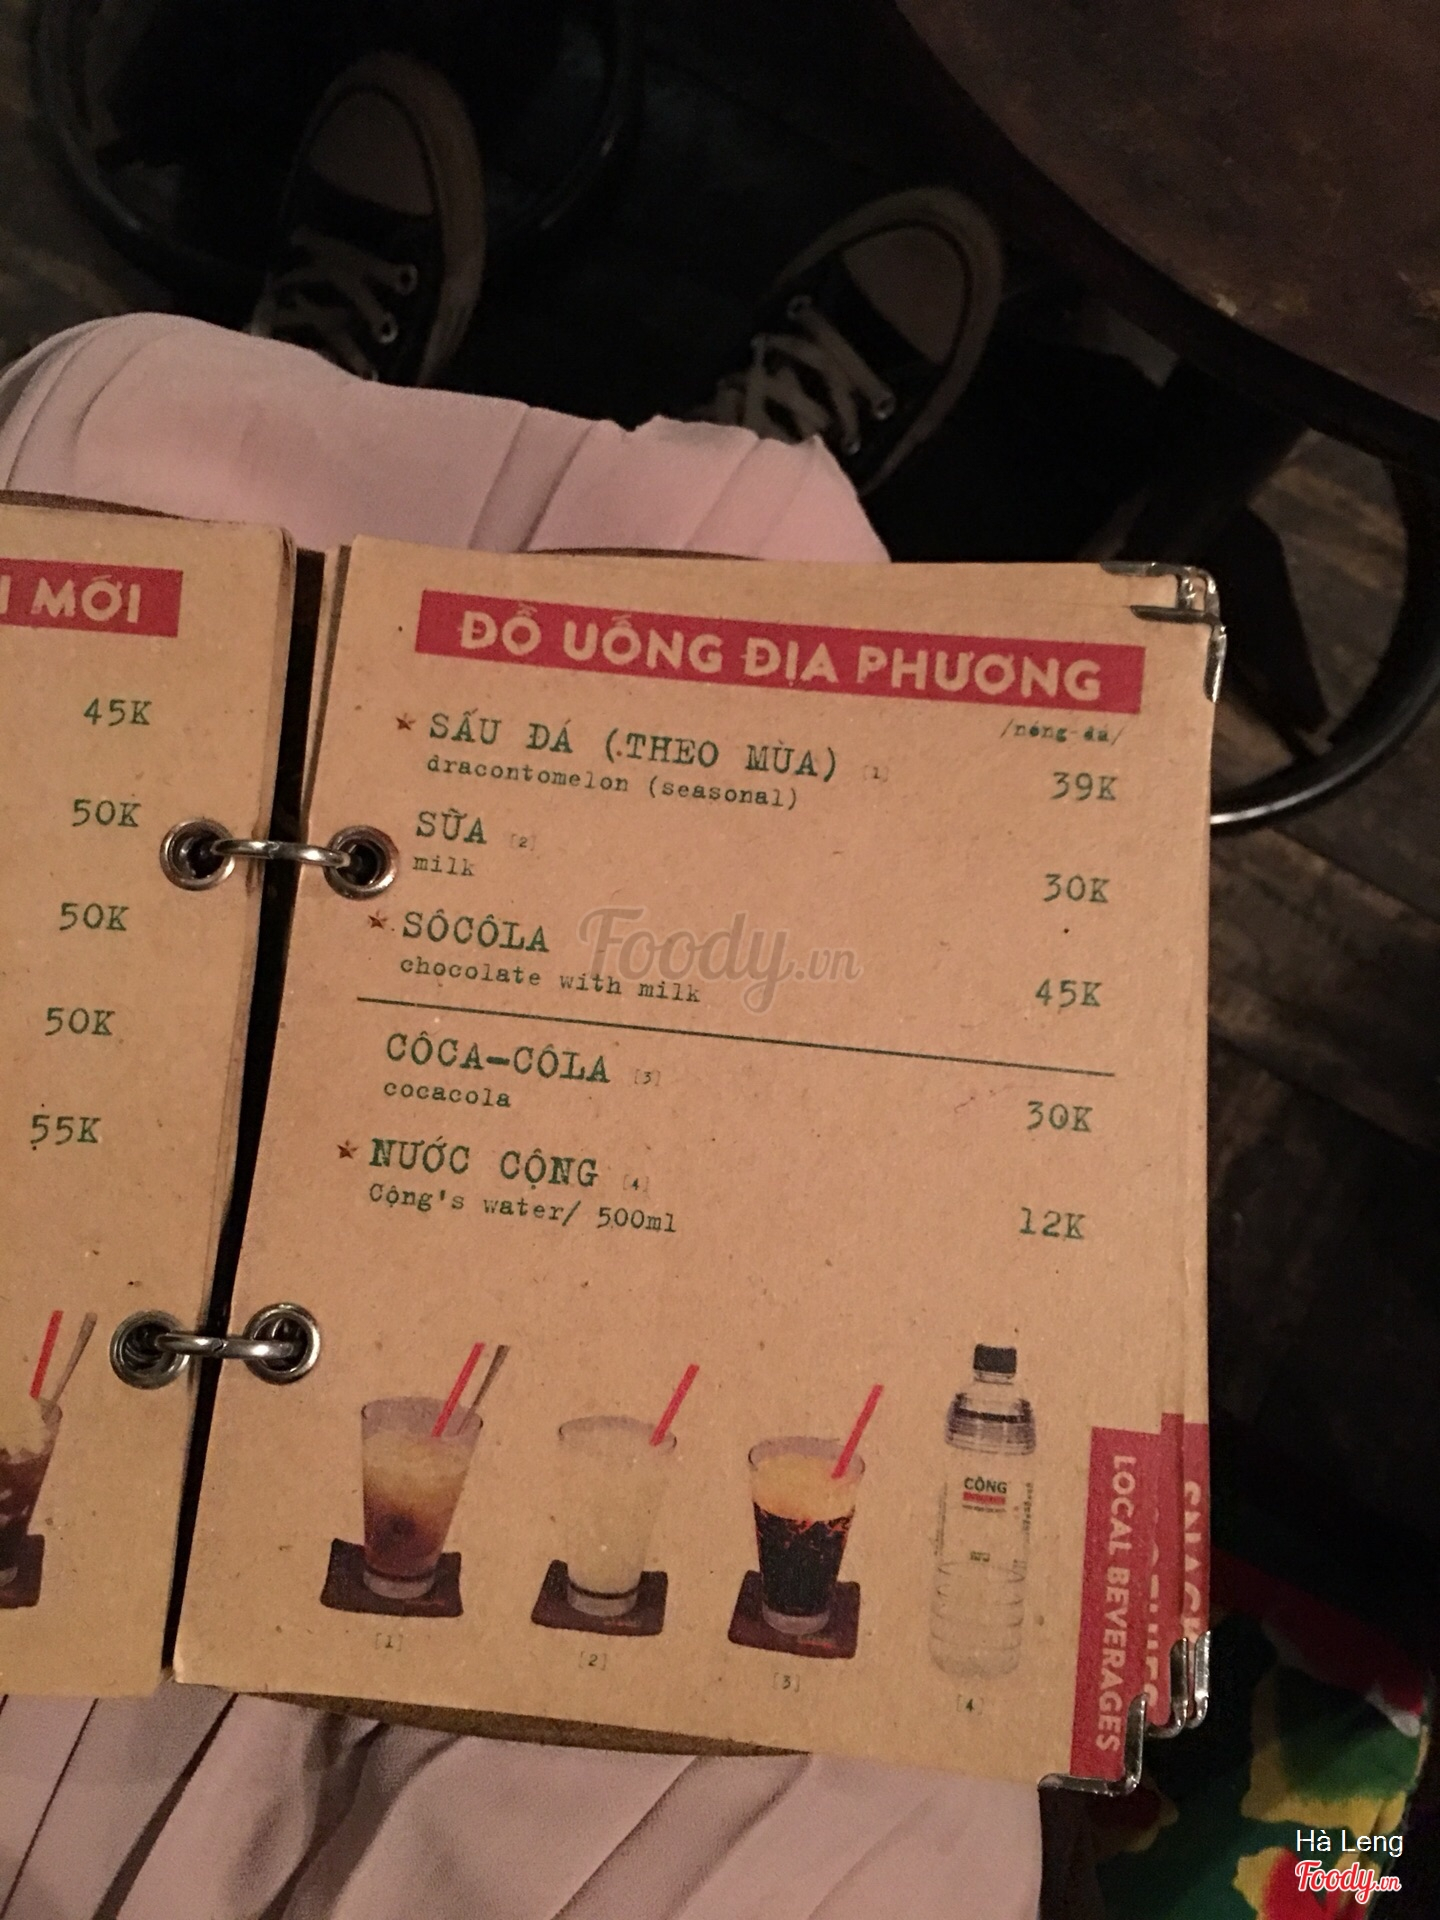 MỚI
45K
50K
50K
50K
55K
ĐỒ UỐNG ĐỊA PHƯƠNG
/nóng-đá/
★ SẤU ĐÁ (THEO MÙA) [1] 39K
dracontomelon (seasonal)
SỮA [2] 30K
milk
★ SÔCÔLA 45K
chocolate with milk
CÔCA-CÔLA [3] 30K
cocacola
★ NƯỚC CỘNG [4] 12K
Cộng's water/ 500ml
CỘNG
[1] [2] [3] [4]
LOCAL BEVERAGES
Foody.vn
Hà Leng
Foody.vn